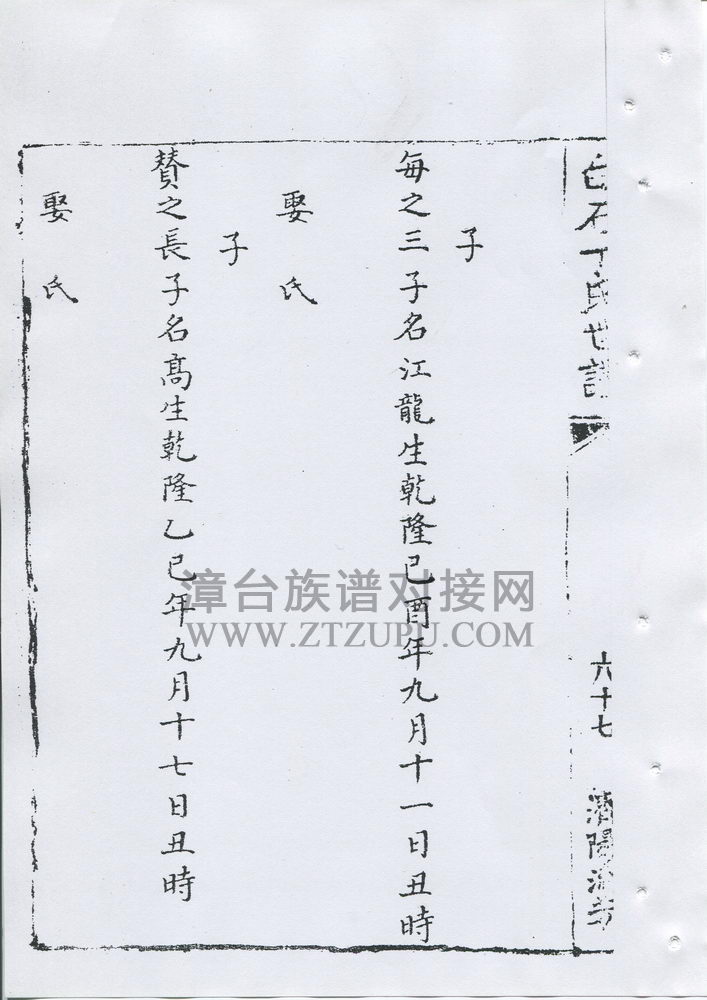 白石丁氏世譜
六十七
濟陽
子
每之三子名江龍生乾隆己酉年九月十一日丑時
娶氏
子
賛之長子名髙生乾隆乙巳年九月十七日丑時
娶氏
漳台族谱对接网
WWW.ZTZUPU.COM